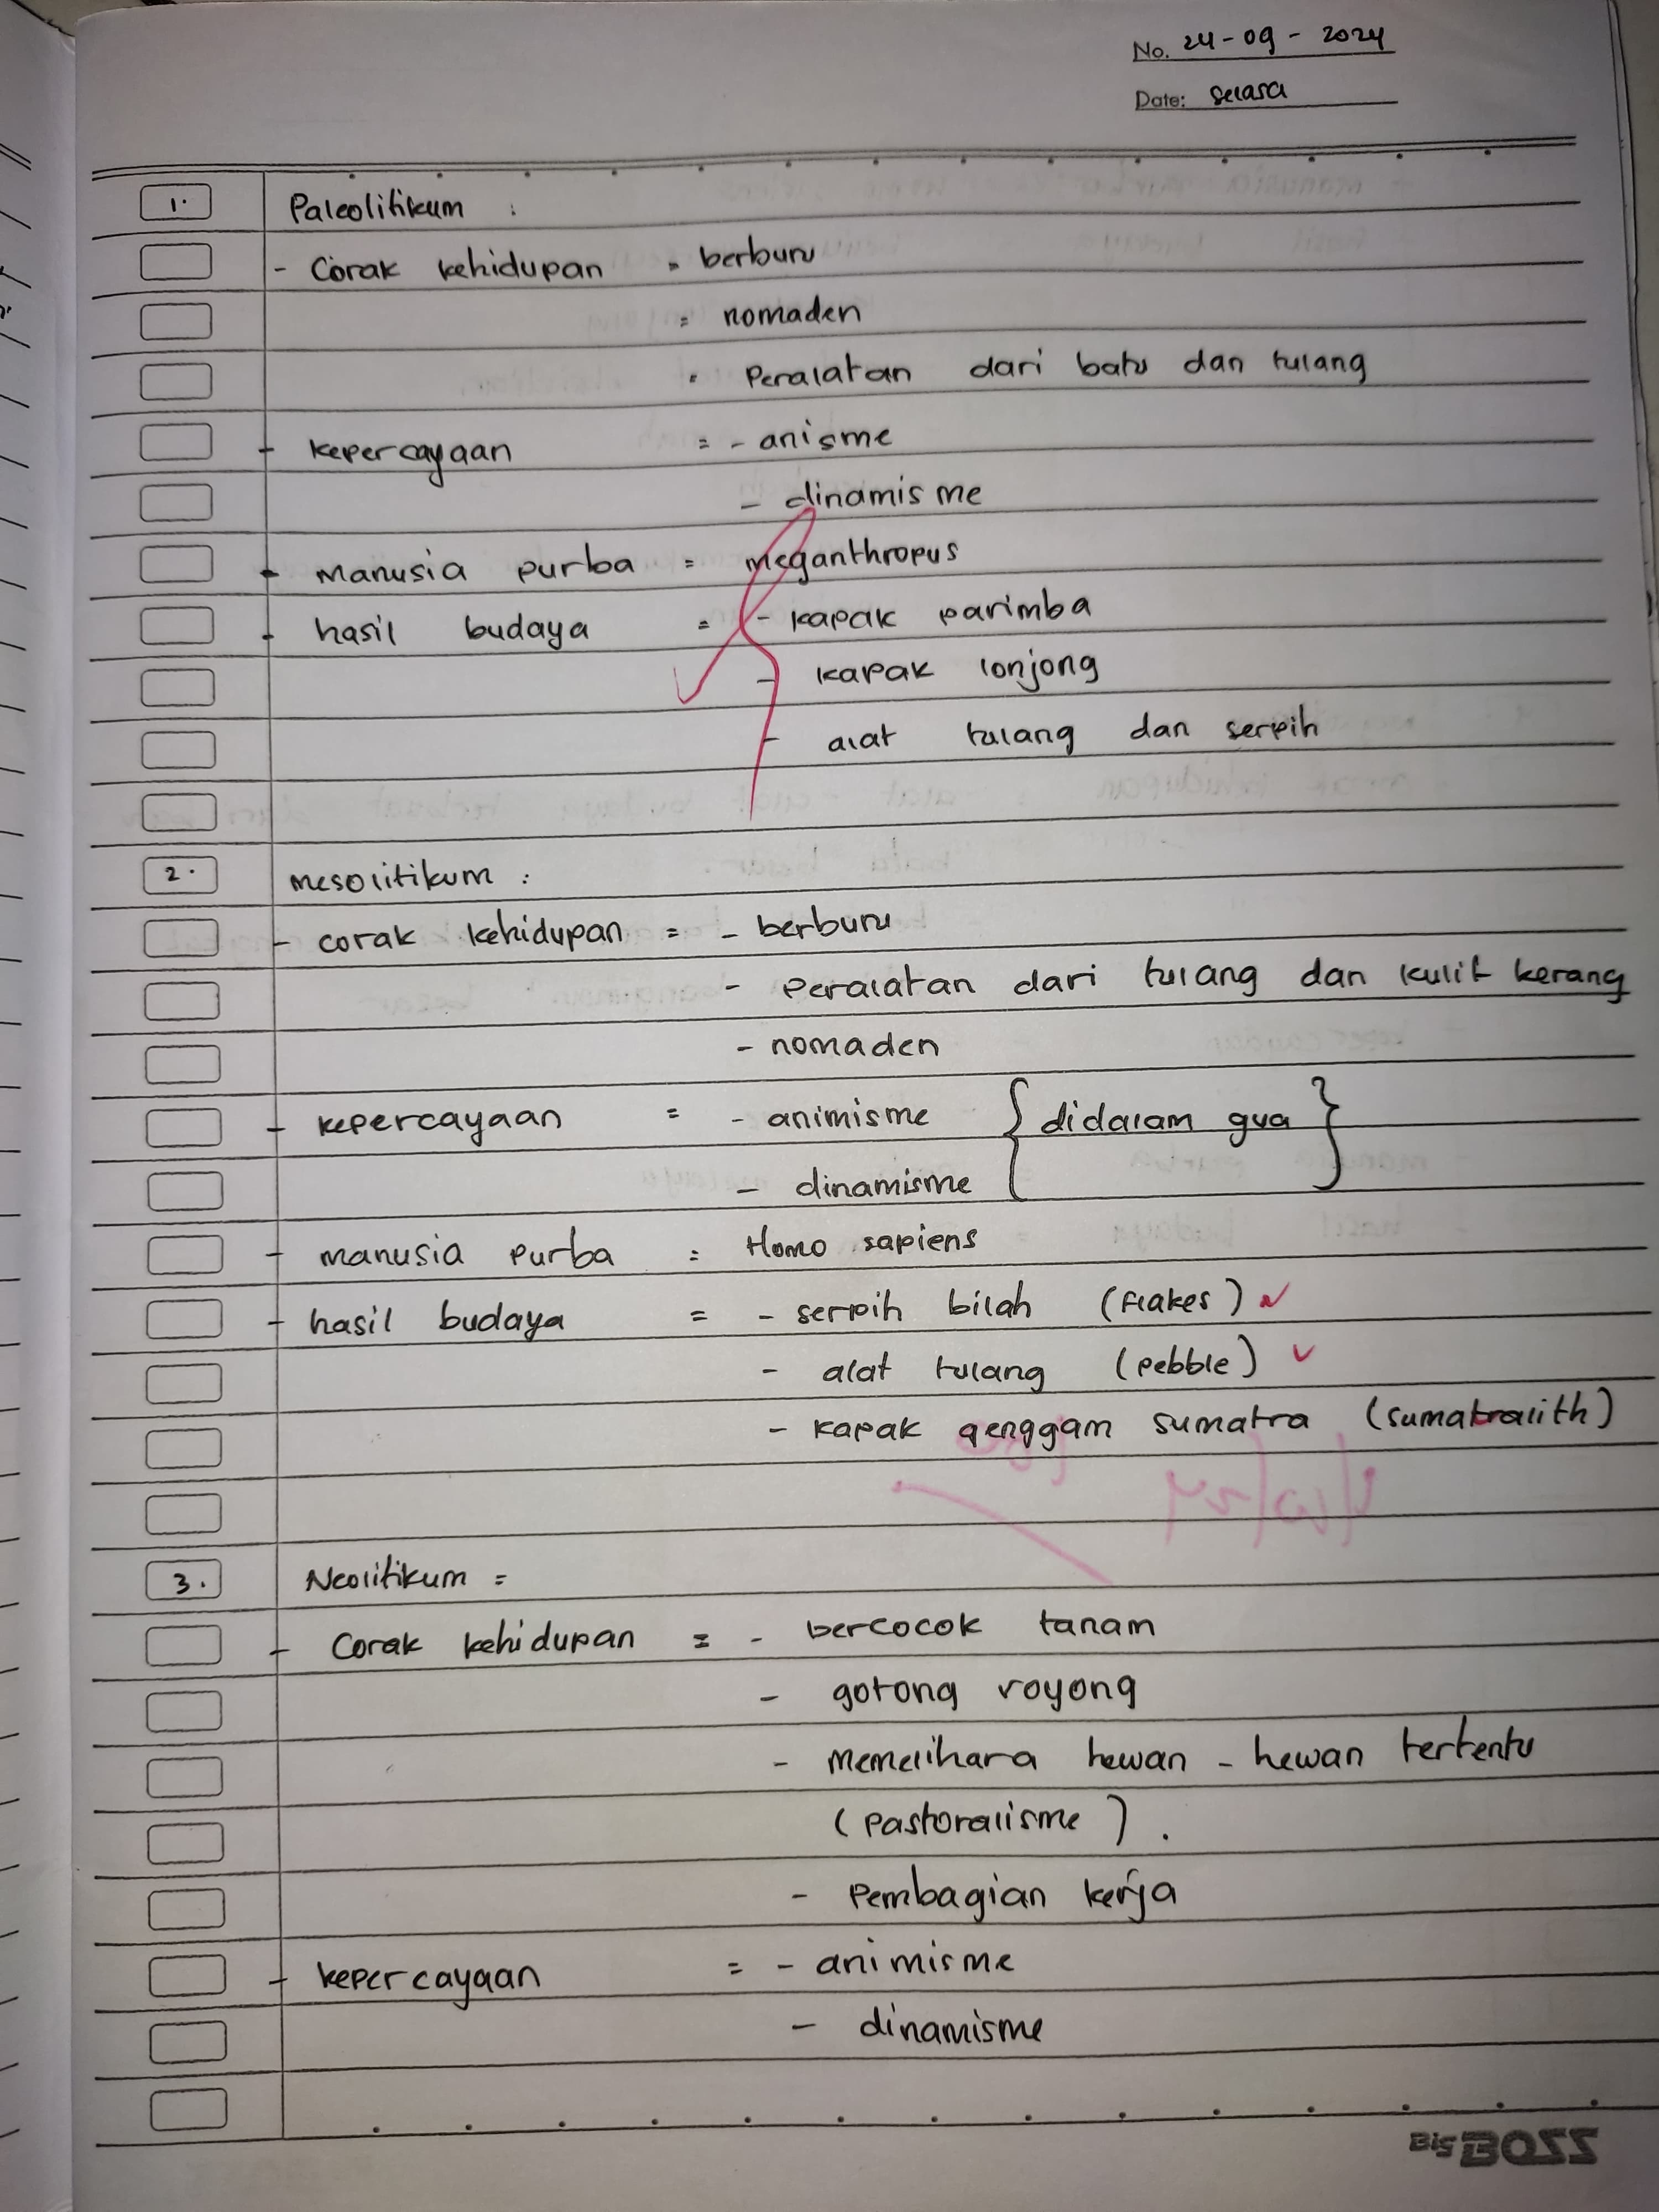 No. 24-09-2024
Date: Selasa
1. Paleolitikum :
- Corak kehidupan = berburu
= nomaden
= Peralatan dari batu dan tulang
- kepercayaan = - anisme
- dinamisme
- manusia purba = meganthropus
- hasil budaya = - kapak parimba
- kapak lonjong
- alat tulang dan serpih
2. mesolitikum :
- corak kehidupan = - berburu
- peralatan dari tulang dan kulit kerang
- nomaden
- kepercayaan = - animisme { didalam gua }
- dinamisme
- manusia purba = Homo sapiens
- hasil budaya = - serpih bilah (flakes)
- alat tulang (pebble)
- kapak genggam sumatra (sumatralith)
3. Neolitikum =
- Corak kehidupan = - bercocok tanam
- gotong royong
- memelihara hewan - hewan tertentu
(pastoralisme).
- Pembagian kerja
- kepercayaan = - animisme
- dinamisme
Big BOSS